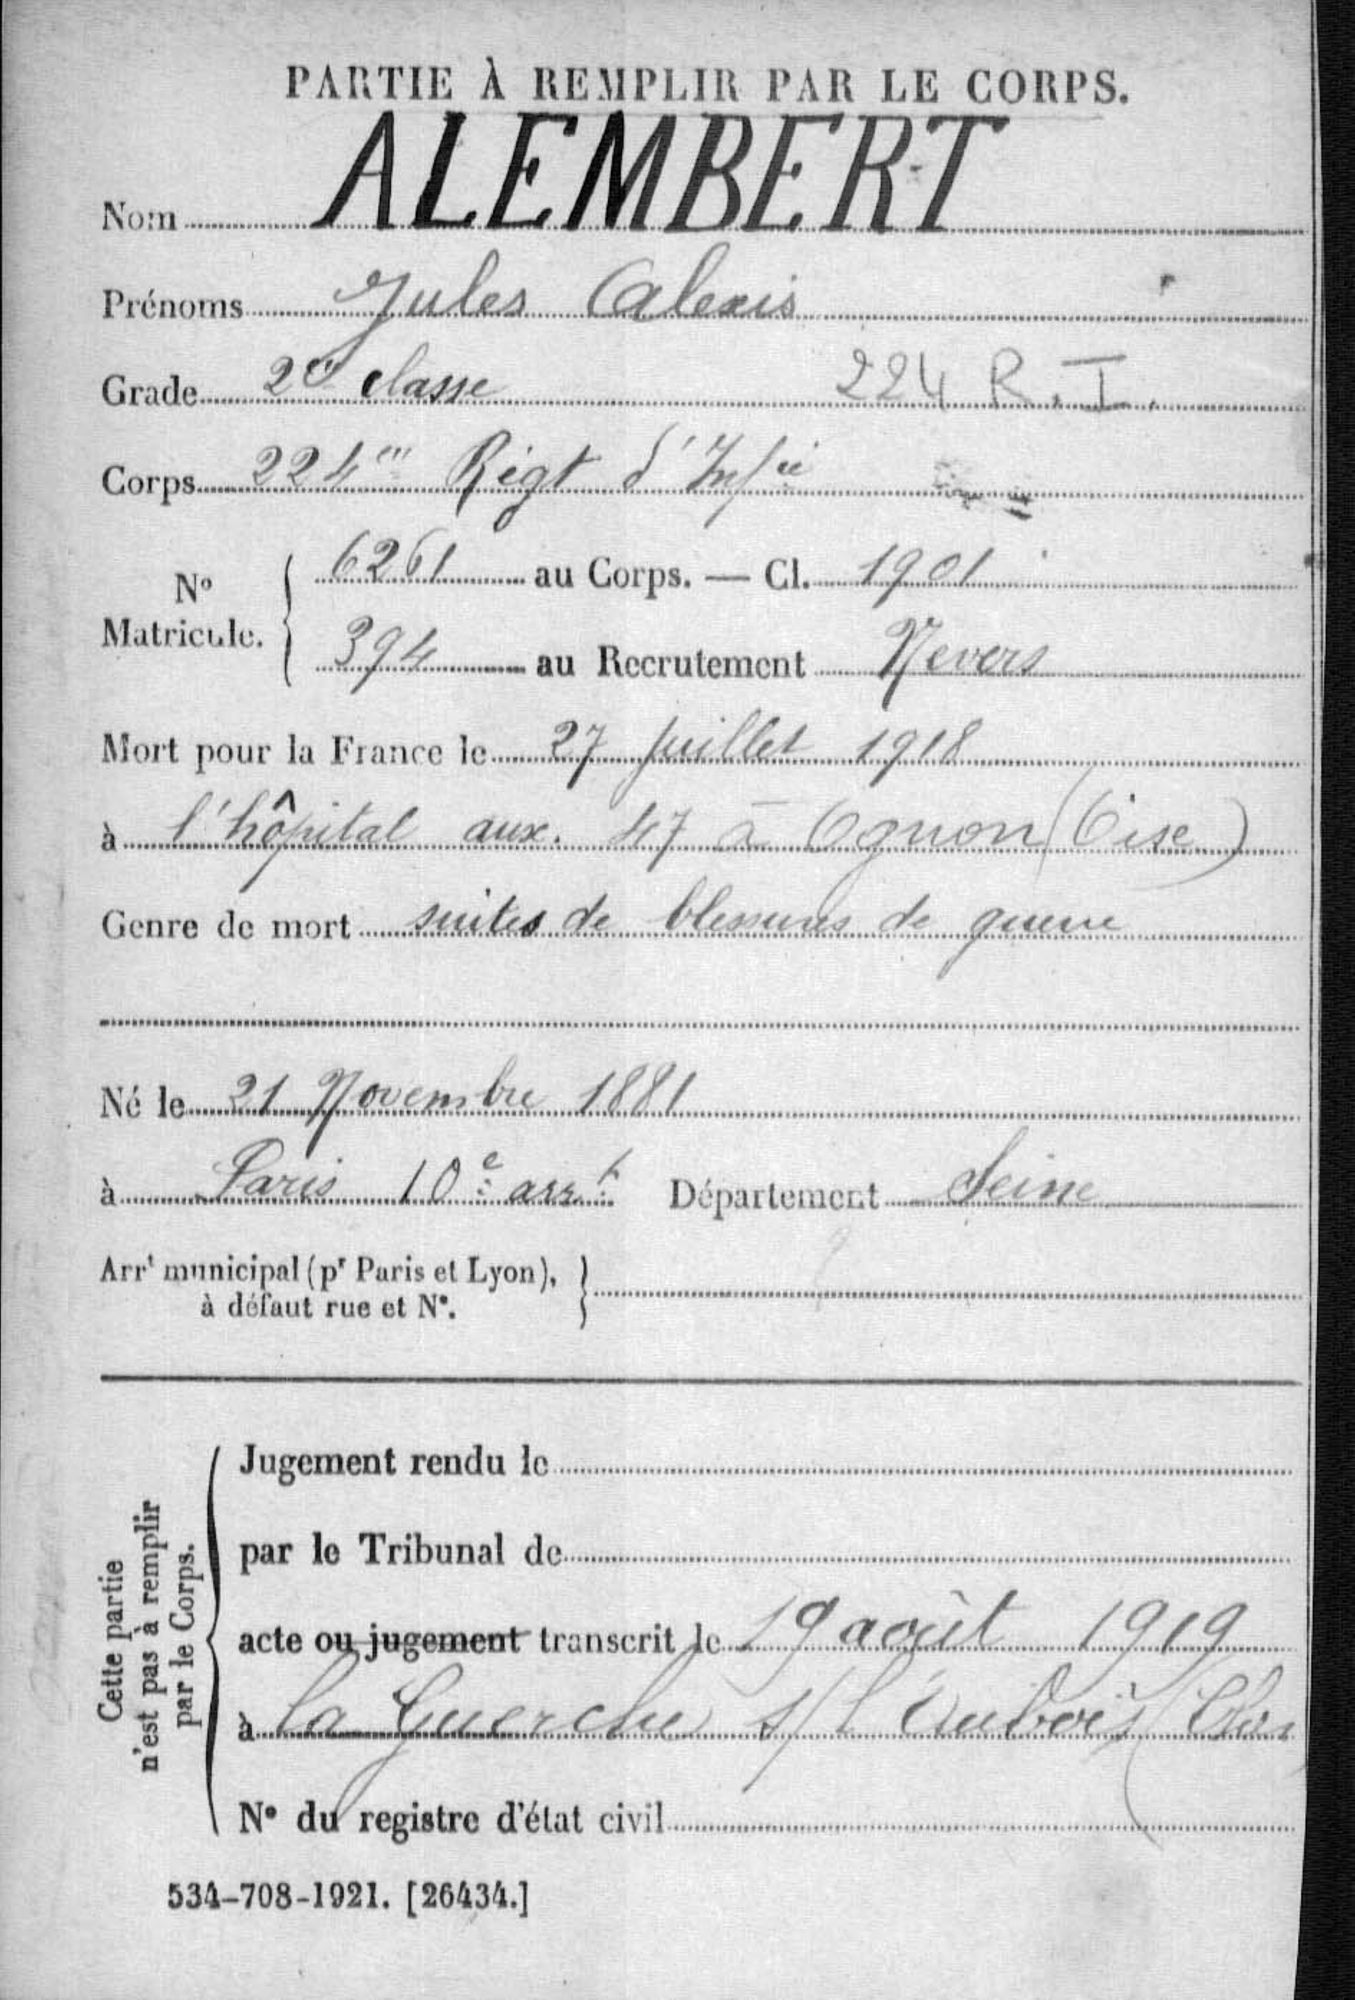 PARTIE À REMPLIR PAR LE CORPS.
Nom ALEMBERT
Prénoms Jules Alexis
Grade 2e classe 224 R.I.
Corps 224e Régt d'Infie
No Matricule. { 6261 au Corps. — Cl. 1901
394 au Recrutement Nevers
Mort pour la France le 27 juillet 1918
à l'hôpital aux. 47 à Ognon (Oise)
Genre de mort suites de blessures de guerre
Né le 21 Novembre 1881
à Paris 10e arrt Département Seine
Arrt municipal (pr Paris et Lyon),
à défaut rue et No.
Cette partie
n'est pas à remplir
par le Corps.
Jugement rendu le
par le Tribunal de
acte ou jugement transcrit le 19 août 1919
à la Guerche s/ l'Aubois (Cher
No du registre d'état civil
534-708-1921. [26434.]